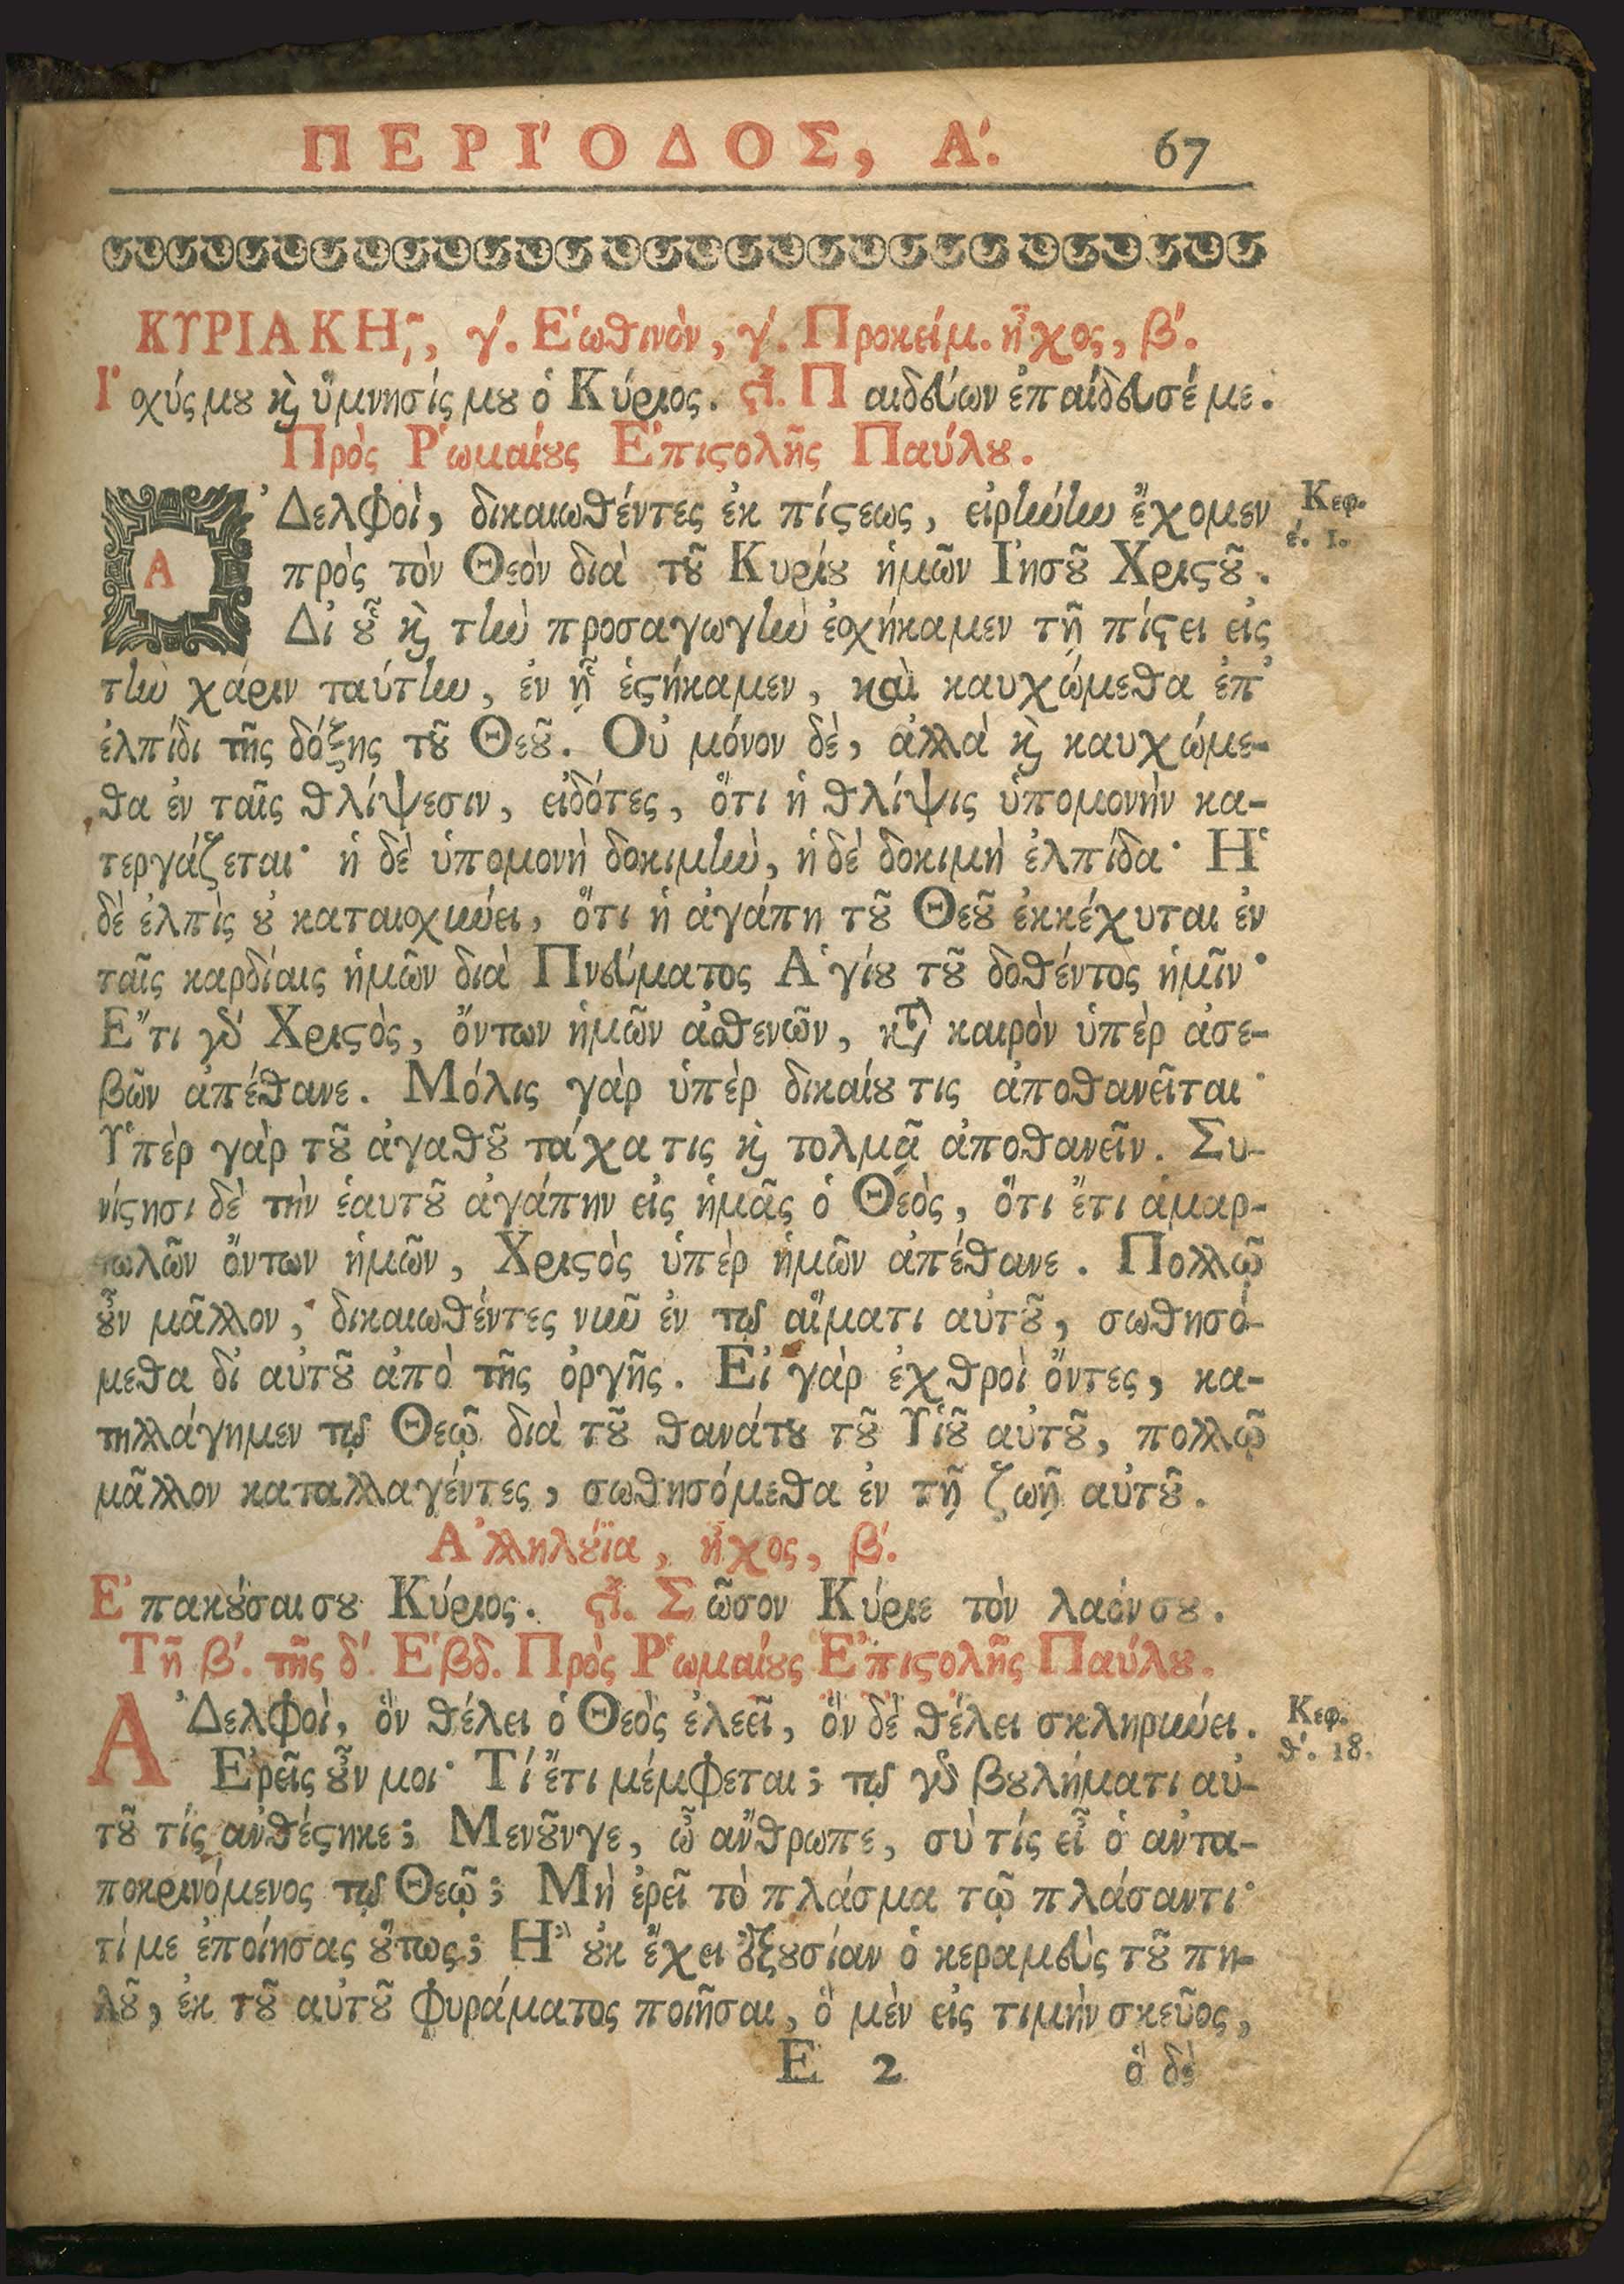 ΠΕΡΙ΄ΟΔΟΣ, Α΄. 67
ΚΥΡΙΑΚῌ͂, γ΄. Ε῾ωθινὸν, γ΄. Προκείμ. ἦχος, β΄.
Ι᾿σχύς μου καὶ ὕμνησίς μου ὁ Κύριος. στί. Παιδεύων ἐπαίδευσέ με.
Πρὸς Ρ῾ωμαίους Ε᾿πιστολῆς Παύλου.
Α᾿Δελφοὶ, δικαιωθέντες ἐκ πίστεως, εἰρήνην ἔχομεν
Κεφ. έ. 1.
πρὸς τὸν Θεὸν διὰ τοῦ Κυρίου ἡμῶν Ι᾿ησοῦ Χριστοῦ.
Δι᾿ οὗ καὶ τὴν προσαγωγὴν ἐσχήκαμεν τῇ πίστει εἰς
τὴν χάριν ταύτην, ἐν ᾗ ἑστήκαμεν, καὶ καυχώμεθα ἐπ᾿
ἐλπίδι τῆς δόξης τοῦ Θεοῦ. Οὐ μόνον δὲ, ἀλλὰ καὶ καυχώμε-
θα ἐν ταῖς θλίψεσιν, εἰδότες, ὅτι ἡ θλίψις ὑπομονὴν κα-
τεργάζεται· ἡ δὲ ὑπομονὴ δοκιμὴν, ἡ δὲ δοκιμὴ ἐλπίδα· Η῾
δὲ ἐλπὶς οὐ καταισχύνει, ὅτι ἡ ἀγάπη τοῦ Θεοῦ ἐκκέχυται ἐν
ταῖς καρδίαις ἡμῶν διὰ Πνεύματος Α῾γίου τοῦ δοθέντος ἡμῖν·
Ε῎τι γὰρ Χριστὸς, ὄντων ἡμῶν ἀσθενῶν, κατὰ καιρὸν ὑπὲρ ἀσε-
βῶν ἀπέθανε. Μόλις γὰρ ὑπὲρ δικαίου τις ἀποθανεῖται·
Υ῾πὲρ γὰρ τοῦ ἀγαθοῦ τάχα τις καὶ τολμᾷ ἀποθανεῖν. Συ-
νίστησι δὲ τὴν ἑαυτοῦ ἀγάπην εἰς ἡμᾶς ὁ Θεὸς, ὅτι ἔτι ἁμαρ-
τωλῶν ὄντων ἡμῶν, Χριστὸς ὑπὲρ ἡμῶν ἀπέθανε. Πολλῷ
οὖν μᾶλλον, δικαιωθέντες νῦν ἐν τῷ αἵματι αὐτοῦ, σωθησό-
μεθα δι᾿ αὐτοῦ ἀπὸ τῆς ὀργῆς. Εἰ γὰρ ἐχθροὶ ὄντες, κα-
τηλλάγημεν τῷ Θεῷ διὰ τοῦ θανάτου τοῦ Υἱοῦ αὐτοῦ, πολλῷ
μᾶλλον καταλλαγέντες, σωθησόμεθα ἐν τῇ ζωῇ αὐτοῦ.
Α᾿λληλούϊα, ἦχος, β΄.
Ε᾿πακούσαι σου Κύριος. στί. Σῶσον Κύριε τὸν λαόν σου.
Τῇ β΄. τῆς δ΄. Ε῾βδ. Πρὸς Ρ῾ωμαίους Ε᾿πιστολῆς Παύλου.
Α᾿Δελφοὶ, ὃν θέλει ὁ Θεὸς ἐλεεῖ, ὃν δὲ θέλει σκληρύνει.
Κεφ. θ΄. 18.
Ε᾿ρεῖς οὖν μοι· Τί ἔτι μέμφεται; τῷ γὰρ βουλήματι αὐ-
τοῦ τίς ἀνθέστηκε; Μενοῦνγε, ὦ ἄνθρωπε, σὺ τίς εἶ ὁ ἀντα-
ποκρινόμενος τῷ Θεῷ; Μὴ ἐρεῖ τὸ πλάσμα τῷ πλάσαντι·
τί με ἐποίησας οὕτως; Η῍ οὐκ ἔχει ἐξουσίαν ὁ κεραμεὺς τοῦ πη-
λοῦ, ἐκ τοῦ αὐτοῦ φυράματος ποιῆσαι, ὃ μὲν εἰς τιμὴν σκεῦος,
Ε 2 ὃ δὲ